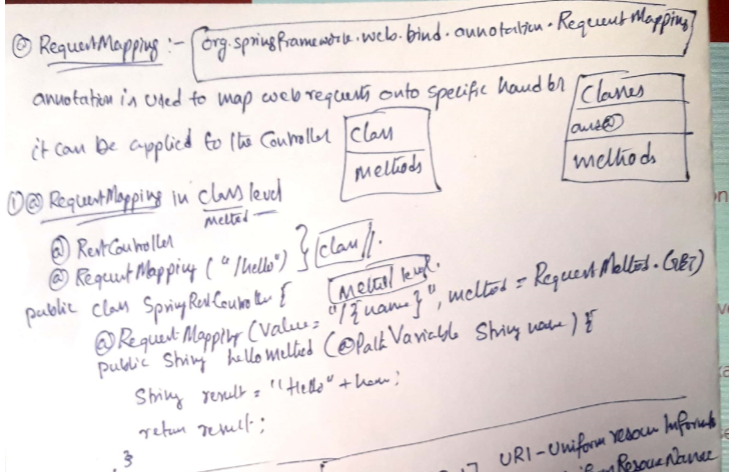 @ RequestMapping :- org.springframework.web.bind.annotation.RequestMapping
annotation is used to map web requests onto specific handler classes
and@
methods
it can be applied to the Controller class
methods
① @ RequestMapping in class level
method
@ RestController
@ RequestMapping ("/hello") } class.
public class SpringRestController {
Method level.
@ RequestMapping (value = "/{name}", method = RequestMethod.GET)
public String helloMethod (@PathVariable String name) {
String result = "Hello" + name;
return result;
}
URI - Uniform resou Informat
Resou Name